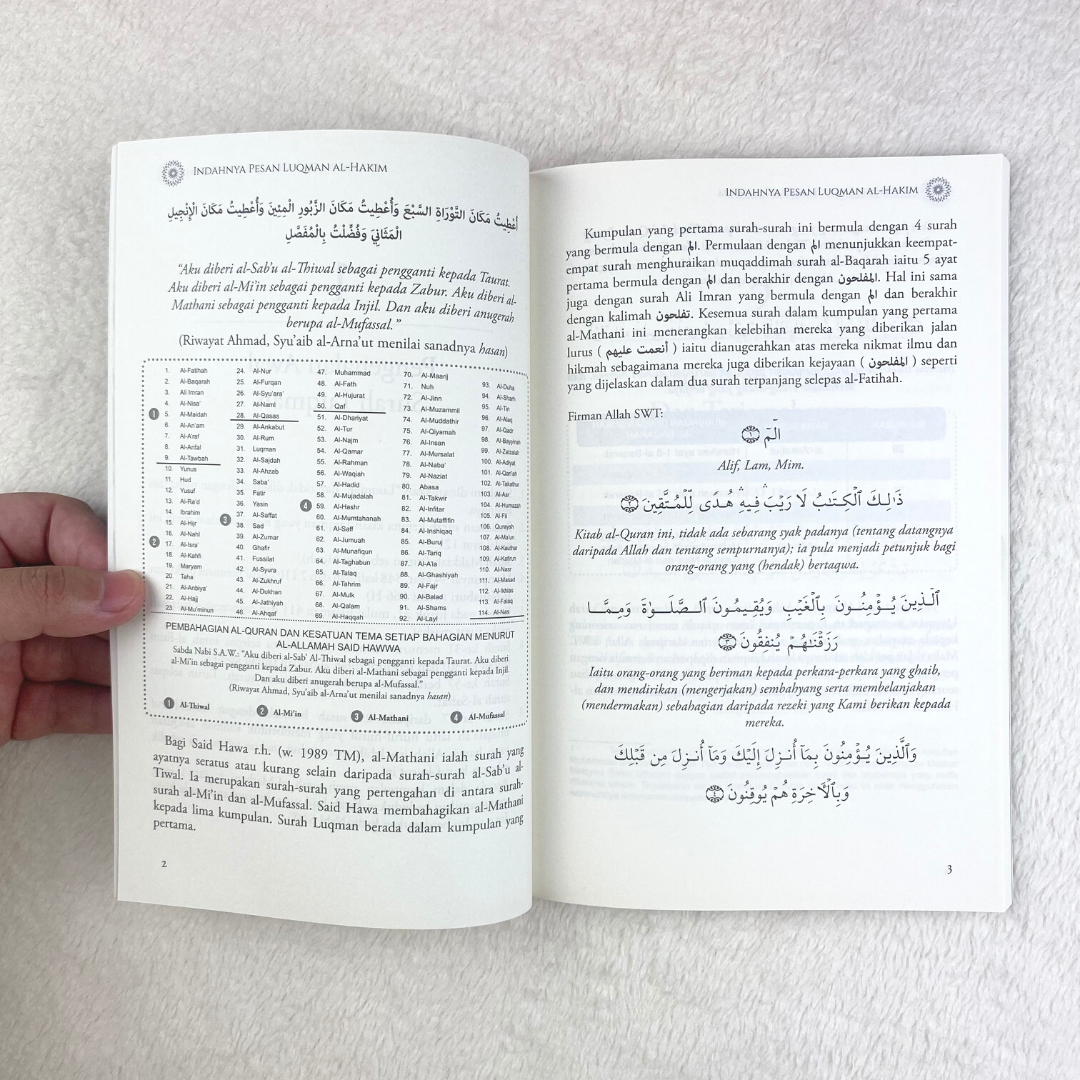 INDAHNYA PESAN LUQMAN AL-HAKIM
أُعْطِيتُ مَكَانَ التَّوْرَاةِ السَّبْعَ وَأُعْطِيتُ مَكَانَ الزَّبُورِ الْمِئِينَ وَأُعْطِيتُ مَكَانَ الْإِنْجِيلِ
الْمَثَانِيَ وَفُضِّلْتُ بِالْمُفَصَّلِ
“Aku diberi al-Sab’u al-Thiwal sebagai pengganti kepada Taurat.
Aku diberi al-Mi’in sebagai pengganti kepada Zabur. Aku diberi al-
Mathani sebagai pengganti kepada Injil. Dan aku diberi anugerah
berupa al-Mufassal.”
(Riwayat Ahmad, Syu’aib al-Arna’ut menilai sanadnya hasan)
1
2
3
4
1. Al-Fatihah
2. Al-Baqarah
3. Ali Imran
4. Al-Nisa'
5. Al-Maidah
6. Al-An'am
7. Al-A'raf
8. Al-Anfal
9. Al-Tawbah
10. Yunus
11. Hud
12. Yusuf
13. Al-Ra'd
14. Ibrahim
15. Al-Hijr
16. Al-Nahl
17. Al-Isra'
18. Al-Kahfi
19. Maryam
20. Taha
21. Al-Anbiya'
22. Al-Hajj
23. Al-Mu'minun
24. Al-Nur
25. Al-Furqan
26. Al-Syu'ara'
27. Al-Naml
28. Al-Qasas
29. Al-Ankabut
30. Al-Rum
31. Luqman
32. Al-Sajdah
33. Al-Ahzab
34. Saba'
35. Fatir
36. Yasin
37. Al-Saffat
38. Sad
39. Al-Zumar
40. Ghafir
41. Fussilat
42. Al-Syura
43. Al-Zukhruf
44. Al-Dukhan
45. Al-Jathiyah
46. Al-Ahqaf
47. Muhammad
48. Al-Fath
49. Al-Hujurat
50. Qaf
51. Al-Dhariyat
52. Al-Tur
53. Al-Najm
54. Al-Qamar
55. Al-Rahman
56. Al-Waqiah
57. Al-Hadid
58. Al-Mujadalah
59. Al-Hashr
60. Al-Mumtahanah
61. Al-Saff
62. Al-Jumuah
63. Al-Munafiqun
64. Al-Taghabun
65. Al-Talaq
66. Al-Tahrim
67. Al-Mulk
68. Al-Qalam
69. Al-Haqqah
70. Al-Maarij
71. Nuh
72. Al-Jinn
73. Al-Muzammil
74. Al-Muddathir
75. Al-Qiyamah
76. Al-Insan
77. Al-Mursalat
78. Al-Naba'
79. Al-Naziat
80. Abasa
81. Al-Takwir
82. Al-Infitar
83. Al-Mutaffifin
84. Al-Inshiqaq
85. Al-Buruj
86. Al-Tariq
87. Al-A'la
88. Al-Ghashiyah
89. Al-Fajr
90. Al-Balad
91. Al-Shams
92. Al-Layl
93. Al-Duha
94. Al-Sharh
95. Al-Tin
96. Al-Alaq
97. Al-Qadr
98. Al-Bayyinah
99. Al-Zalzalah
100. Al-Adiyat
101. Al-Qariah
102. Al-Takathur
103. Al-Asr
104. Al-Humazah
105. Al-Fil
106. Quraysh
107. Al-Ma'un
108. Al-Kauthar
109. Al-Kafirun
110. Al-Nasr
111. Al-Masad
112. Al-Ikhlas
113. Al-Falaq
114. Al-Nas
PEMBAHAGIAN AL-QURAN DAN KESATUAN TEMA SETIAP BAHAGIAN MENURUT
AL-ALLAMAH SAID HAWWA
Sabda Nabi S.A.W.: “Aku diberi al-Sab’ Al-Thiwal sebagai pengganti kepada Taurat. Aku diberi
al-Mi’in sebagai pengganti kepada Zabur. Aku diberi al-Mathani sebagai pengganti kepada Injil.
Dan aku diberi anugerah berupa al-Mufassal.”
(Riwayat Ahmad, Syu’aib al-Arna’ut menilai sanadnya hasan)
1 Al-Thiwal 2 Al-Mi’in 3 Al-Mathani 4 Al-Mufassal
Bagi Said Hawa r.h. (w. 1989 TM), al-Mathani ialah surah yang
ayatnya seratus atau kurang selain daripada surah-surah al-Sab’u al-
Tiwal. Ia merupakan surah-surah yang pertengahan di antara surah-
surah al-Mi’in dan al-Mufassal. Said Hawa membahagikan al-Mathani
kepada lima kumpulan. Surah Luqman berada dalam kumpulan yang
pertama.
2
INDAHNYA PESAN LUQMAN AL-HAKIM
Kumpulan yang pertama surah-surah ini bermula dengan 4 surah
yang bermula dengan الم. Permulaan dengan الم menunjukkan keempat-
empat surah menghuraikan muqaddimah surah al-Baqarah iaitu 5 ayat
pertama bermula dengan الم dan berakhir dengan المفلحون. Hal ini sama
juga dengan surah Ali Imran yang bermula dengan الم dan berakhir
dengan kalimah تفلحون. Kesemua surah dalam kumpulan yang pertama
al-Mathani ini menerangkan kelebihan mereka yang diberikan jalan
lurus ( أنعمت عليهم ) iaitu dianugerahkan atas mereka nikmat ilmu dan
hikmah sebagaimana mereka juga diberikan kejayaan ( المفلحون ) seperti
yang dijelaskan dalam dua surah terpanjang selepas al-Fatihah.
Firman Allah SWT:
الٓمٓ ١
Alif, Lam, Mim.
ذَٰلِكَ ٱلْكِتَٰبُ لَا رَيْبَ ۛ فِيهِ ۛ هُدًى لِّلْمُتَّقِينَ ٢
Kitab al-Quran ini, tidak ada sebarang syak padanya (tentang datangnya
daripada Allah dan tentang sempurnanya); ia pula menjadi petunjuk bagi
orang-orang yang (hendak) bertaqwa.
ٱلَّذِينَ يُؤْمِنُونَ بِٱلْغَيْبِ وَيُقِيمُونَ ٱلصَّلَوٰةَ وَمِمَّا
رَزَقْنَٰهُمْ يُنفِقُونَ ٣
Iaitu orang-orang yang beriman kepada perkara-perkara yang ghaib,
dan mendirikan (mengerjakan) sembahyang serta membelanjakan
(mendermakan) sebahagian daripada rezeki yang Kami berikan kepada
mereka.
وَٱلَّذِينَ يُؤْمِنُونَ بِمَآ أُنزِلَ إِلَيْكَ وَمَآ أُنزِلَ مِن قَبْلِكَ
وَبِٱلْءَاخِرَةِ هُمْ يُوقِنُونَ ٤
3